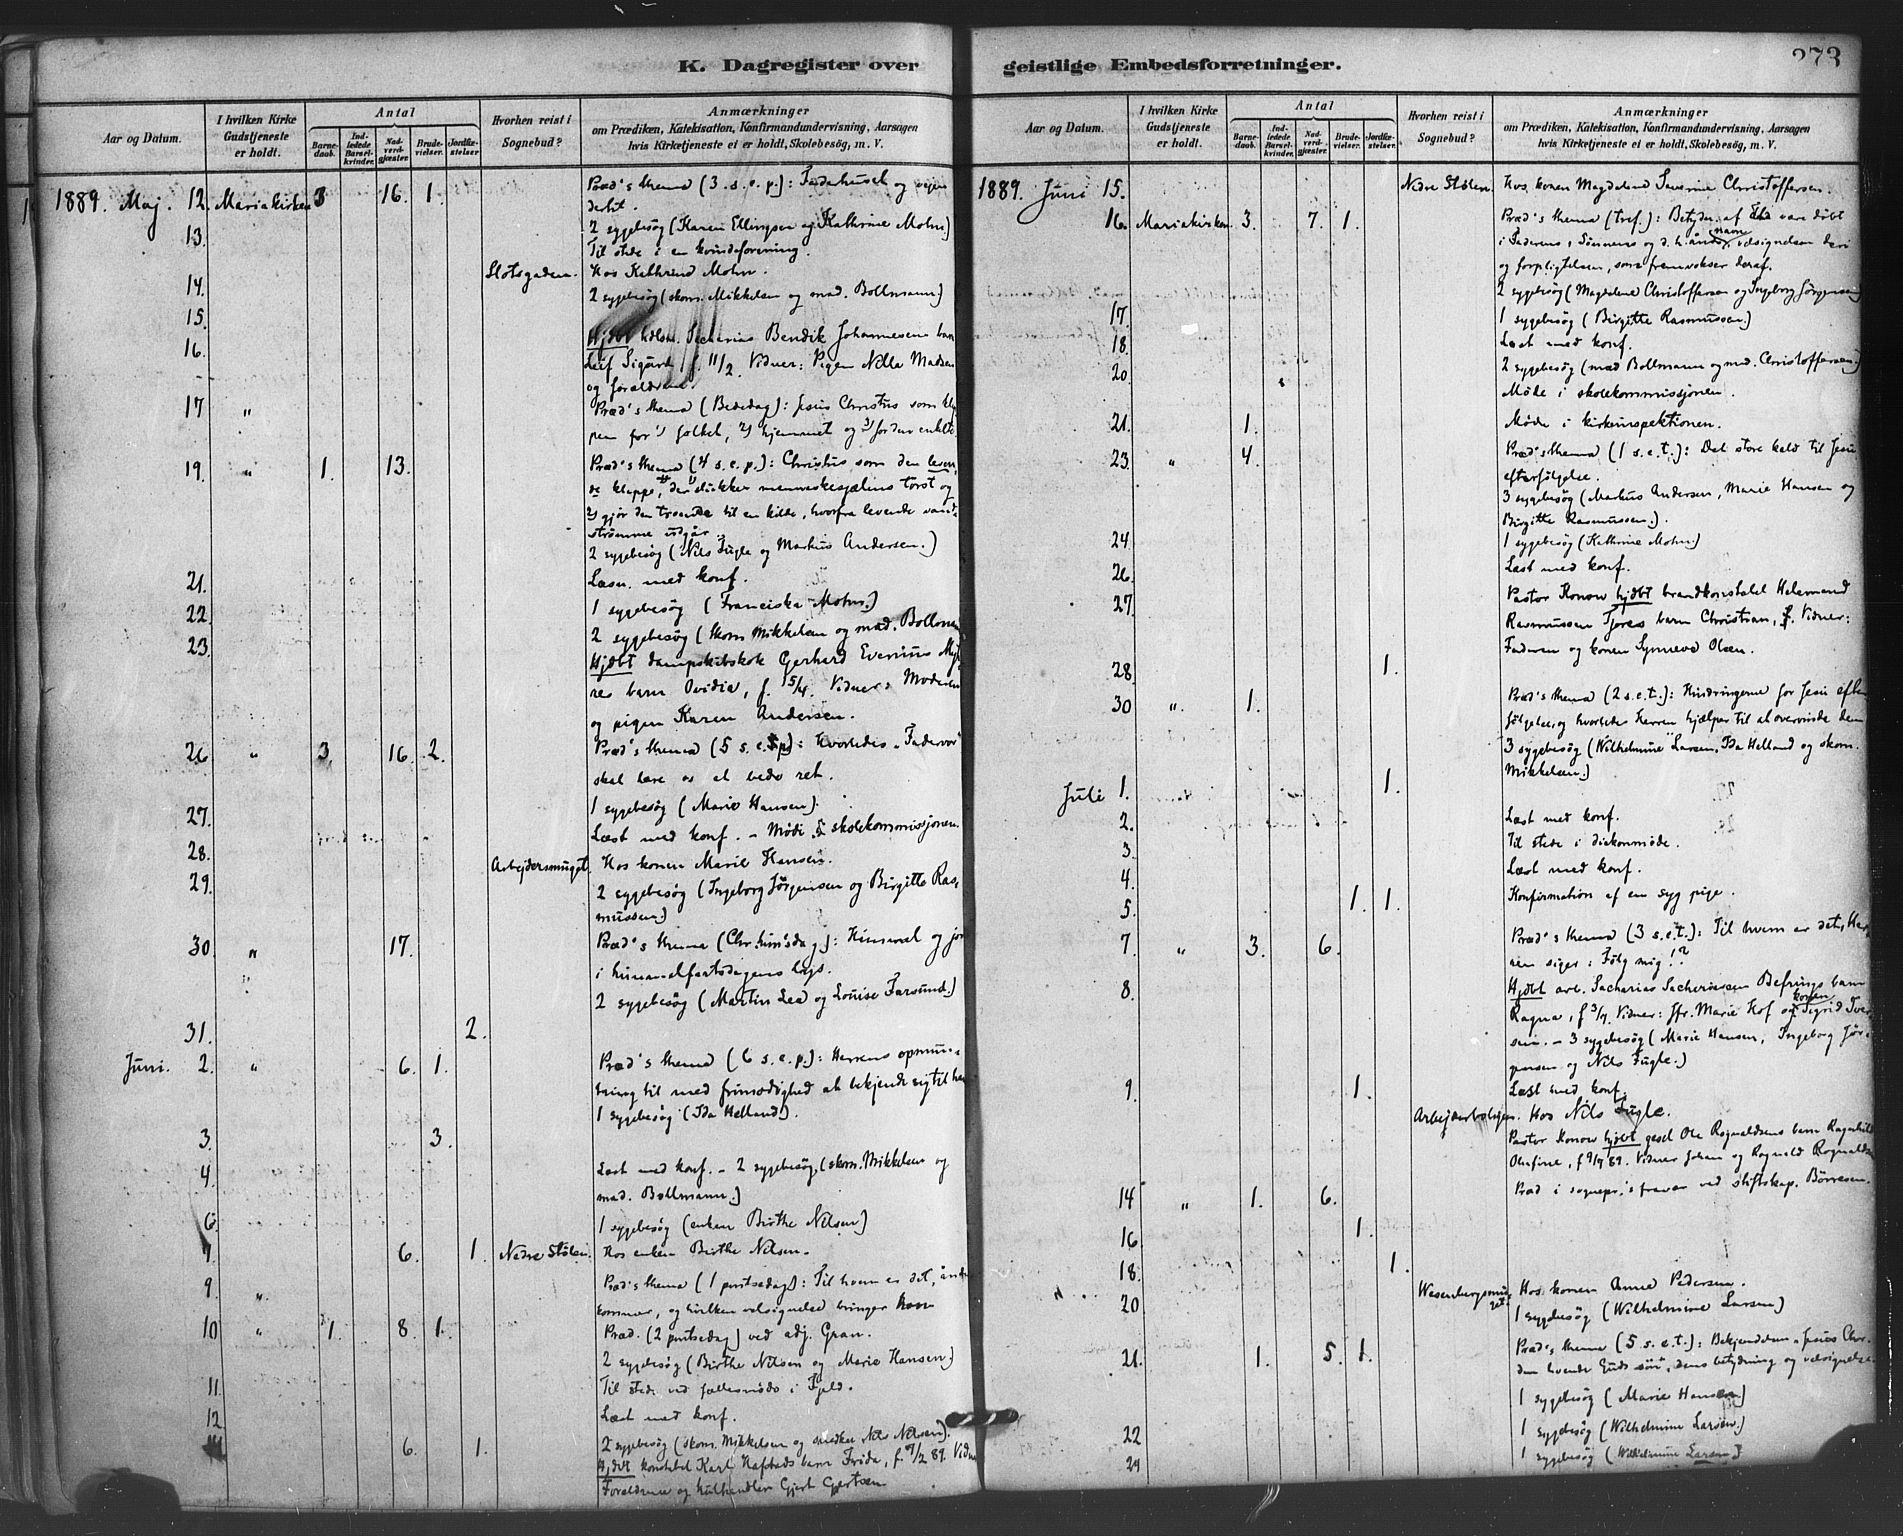 K. Dagregister over
Aar og Datum.
I hvilken Kirke Gudstjeneste er holdt.
Antal
Barnedaab.
Indledede Barselkvinder.
Nadverdgjæster.
Brudevielser.
Jordfæstelser.
Hvorhen reist i Sognebud?
Anmærkninger
om Prædiken, Katekisation, Konfirmandundervisning, Aarsagen
hvis Kirketjeneste ei er holdt, Skolebesøg, m. V.
1889. Maj. 12. Mariakirken 3 16. 1. Præd's thema (3. s. e. p.): Faderhuset og vejen
dertil.
13. 2 sygebesøg (Karen Ellingsen og Kathrine Mohn)
Til stede i en kvindeforening.
Slotsgaden. Hos Kathrine Mohn.
14. 2 sygebesøg (skom. Mikkelsen og mad. Bollmann)
15.
16. Hjdbt Sacharias Bendik Johannesens barn
Leif Sigurd f. 11/2. Vidner: Pigen Nella Madsen
og forældrene.
17 " Præd's thema (Bededag): Jesus Christus som
for 1) folket, 2) hjemmet og 3) for den enkelte.
19. " 1. 13. Præd's thema (4 s. e. p.): Christus som den leven,
de klippe, der 1) slukker menneskesjælens tørst og
2) gjør den troende til en kilde, hvorfra levende vand,
strømme udgår.
2 sygebesøg (Nils Fugle og Markus Andersen.)
21. Læsn. med konf.
22. 1 sygebesøg (Franciska Mohn.)
23. 2 sygebesøg (skom. Mikkelsen og mad. Bollman
Hjdbt dampskibskok Gerhard Evenius
barn Ovidia, f. 15/4. Vidner: Moderen
og pigen Karen Andersen.
26 " 3. 16. 2. Præd's thema (5 s. e. p): Hvorledes "Fadervor"
skal lære os at bede ret.
1 sygebesøg (Marie Hansen).
27. Læst med konf. – Møde i skolekommissjonen.
28. Arbejdersmuget. Hos konen Marie Hansen.
29. 2 sygebesøg (Ingeborg Jørgensen og Birgitte Ras,
mussen.)
30. " 17. Præd's thema (Chr. him.'sdag): Himmel og jord
i himmelfartsdagens lys.
2 sygebesøg (Martin Lea og Louise Farsund.)
31. 2.
Juni. 2. " 6. 1. Præd's thema (6 s. e. p.): Herrens opmun,
tring til med frimodighed at bekjende sig til ham
1 sygebesøg (Ida Helland).
3. 3.
4 Læst med konf. – 2 sygebesøg (skom. Mikkelsen og
mad. Bollmann.)
6. 1 sygebesøg (enken Birthe Nilsen)
7. 6. 1. Nedre Stølen. Hos enken Birthe Nilsen.
9 " Præd's thema (1 pintsedag): Til hvem er det, ånden
kommer, og hvilken velsignelse bringer han
10 " 1. 8. 1. Præd. (2 pintsedag) ved adj. Gran.
2 sygebesøg (Birthe Nilsen og Marie Hansen)
11. Til stede ved fællesmøde i Fjeld.
12 Læst med konf.
14 6. 1. 2 sygebesøg (skom. Mikkelsen og snedker Nils Nilsen).
Hjdbt konstabel Karl Hafstads barn Frida, f. 9/2 89. Vidn
Forældrene og Gjert Gjertsen
geistlige Embedsforretninger.
273
Aar og Datum.
I hvilken Kirke Gudstjeneste er holdt.
Antal
Barnedaab.
Indledede Barselkvinder.
Nadverdgjæster.
Brudevielser.
Jordfæstelser.
Hvorhen reist i Sognebud?
Anmærkninger
om Prædiken, Katekisation, Konfirmandundervisning, Aarsagen
hvis Kirketjeneste ei er holdt, Skolebesøg, m. V.
1889. Juni 15. Nedre Stølen. Hos konen Magdalena Severine Christoffersen.
16. Mariakirken. 3. 7. 1. Præd's thema (tref.): Betydn. af at være døbt
i Faderens, Sønnens og d. h. ånds navn, velsignelsen deri
og forpligtelsen, som fremvokser deraf.
2 sygebesøg (Magdalena Christoffersen og Ingeborg Jørgensen)
17. 1 sygebesøg (Birgitte Rasmussen.)
18. Læst med konf.
20 2 sygebesøg (mad Bollmann og mad. Christoffersen.)
Møde i skolekommissjonen.
21. 1. Møde i kirkeinspektionen.
23. " 4. Præd's thema (1 s. e. t.): Det store kald til Jesu
efterfølgelse.
3 sygebesøg (Markus Andersen, Marie Hansen og
Birgitte Rasmussen.).
24 1 sygebesøg (Kathrine Mohn)
26. Læst med konf.
27. Pastor Konow hjdbt brandkonstabel
Rasmussen barn Christian, f. Vidner:
Faderen og konen Synneva Olsen.
28 1.
30 " 1. Præd's thema (2 s. e. t.): Hindringerne for Jesu efter
følgelse, og hvorledes Herren hjælper til at overvinde dem
3 sygebesøg (Wilhelmine Larsen, Ida Helland og skom.
Mikkelsen.)
Juli 1. 1.
2. Læst med konf.
3. Til stede i diakonmøde.
4. Læst med konf.
5. 1. 1. Konfirmation af en syg pige.
7. " 3. 6. Præd's thema (3 s. e. t.): Til hvem er det, Her,
ren siger: Følg mig!?
8. Hjdbt arb. Sacharias Sachariassen Befrings barn
Ragna, f 3/4. Vidner: Jfr. Marie Hof og konen Sigrid Iver
sen. – 3 sygebesøg (Marie Hansen, Ingeborg Jør,
gensen og Nils Fugle.)
9. 1. Læst med konf.
Arbejderboligen. Hos Nils Fugle.
Pastor Konow hjdbt gesel Ole Rognaldsens barn Ragnhild
Olufine, f 9/4 89. Vidner Johan og Rognald Rognaldsen
14 " 1. 6. Præd i sognepr.'s fravær ved stiftskap. Børresen.
16. 1.
18. 1.
20 Wesenbergsmuget. Hos konen Anna Pedersen.
1 sygebesøg (Wilhelmine Larsen)
21. 1. 5. 1. Præd's thema (5 s. e. t.): Bekjendelsen "Jesus Chr.
den levende Guds søn", dens betydning og velsignelse.
1 sygebesøg (Marie Hansen)
22 1 sygebesøg (Wilhelmine Larsen.)
24 1 sygebesøg (Wilhelmine Larsen)